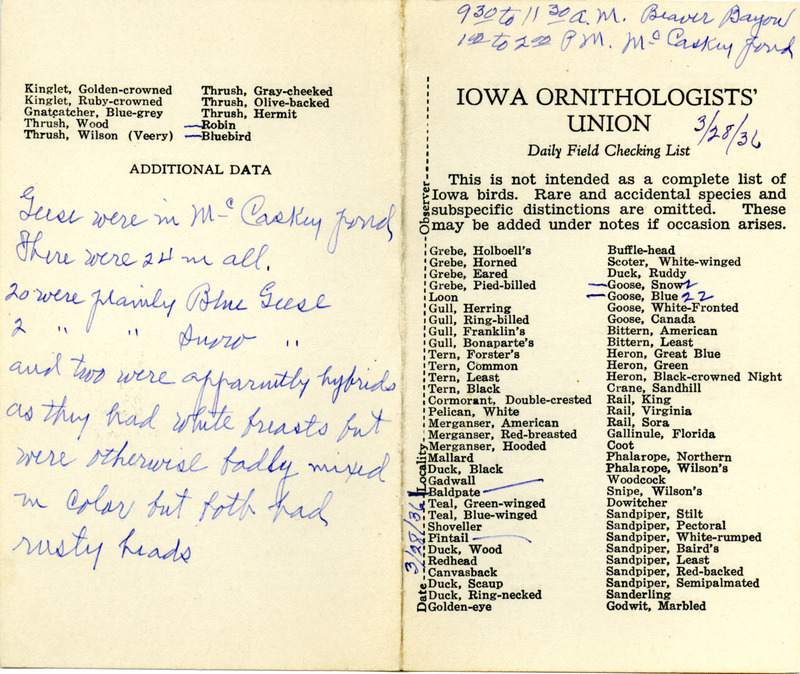 Kinglet, Golden-crowned
Kinglet, Ruby-crowned
Gnatcatcher, Blue-grey
Thrush, Wood
Thrush, Wilson (Veery)
Thrush, Gray-cheeked
Thrush, Olive-backed
Thrush, Hermit
Robin
Bluebird
ADDITIONAL DATA
Geese were in Mc Caskey pond,
There were 24 in all.
20 were plainly Blue Geese
2 " " Snow "
and two were apparently hybrids
as they had white breasts but
were otherwise badly mixed
in color but both had
rusty heads
9 30 to 11 30 A.M. Beaver Bayou
1 00 to 2 00 P.M. Mc Caskey pond
IOWA ORNITHOLOGISTS'
UNION
3/28/36
Daily Field Checking List
This is not intended as a complete list of
Iowa birds. Rare and accidental species and
subspecific distinctions are omitted. These
may be added under notes if occasion arises.
Observer
Locality
Date 3/28/36
Grebe, Holboell's
Grebe, Horned
Grebe, Eared
Grebe, Pied-billed
Loon
Gull, Herring
Gull, Ring-billed
Gull, Franklin's
Gull, Bonaparte's
Tern, Forster's
Tern, Common
Tern, Least
Tern, Black
Cormorant, Double-crested
Pelican, White
Merganser, American
Merganser, Red-breasted
Merganser, Hooded
Mallard
Duck, Black
Gadwall
Baldpate
Teal, Green-winged
Teal, Blue-winged
Shoveller
Pintail
Duck, Wood
Redhead
Canvasback
Duck, Scaup
Duck, Ring-necked
Golden-eye
Buffle-head
Scoter, White-winged
Duck, Ruddy
Goose, Snow 2
Goose, Blue 22
Goose, White-Fronted
Goose, Canada
Bittern, American
Bittern, Least
Heron, Great Blue
Heron, Green
Heron, Black-crowned Night
Crane, Sandhill
Rail, King
Rail, Virginia
Rail, Sora
Gallinule, Florida
Coot
Phalarope, Northern
Phalarope, Wilson's
Woodcock
Snipe, Wilson's
Dowitcher
Sandpiper, Stilt
Sandpiper, Pectoral
Sandpiper, White-rumped
Sandpiper, Baird's
Sandpiper, Least
Sandpiper, Red-backed
Sandpiper, Semipalmated
Sanderling
Godwit, Marbled